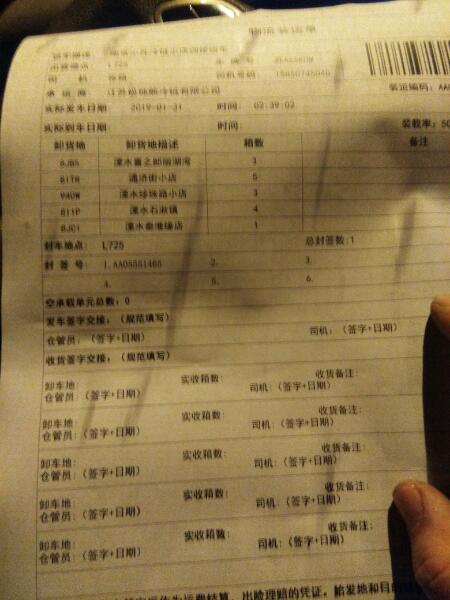 物流装运单
出货地点 L725 车牌号
司 机 司机号码
承 运 商 有限公司 装运编码:
实际发车日期: 2019-01-31 时间: 02:39:02
实际到车日期: 时间: 装载率:
卸货地 卸货地描述 箱数 备注
8JB5 溧水喜之郎丽湖湾 3
81TH 通济街小店 5
9A0W 溧水珍珠路小店 3
811P 溧水石湫镇 4
8JC1 溧水秦淮缘店 1
封车地点: L725 总封签数:1
封 签 号: 1.AA05551465 2. 3.
4. 5. 6.
空承载单元总数: 0
发车签字交接:(规范填写)
仓管员:(签字+日期) 司机:(签字+日期)
收货签字交接:(规范填写)
卸车地: 实收箱数: 收货备注:
仓管员:(签字+日期) 司机:(签字+日期)
卸车地: 实收箱数: 收货备注:
仓管员:(签字+日期) 司机:(签字+日期)
卸车地: 实收箱数: 收货备注:
仓管员:(签字+日期) 司机:(签字+日期)
卸车地: 实收箱数: 收货备注:
仓管员:(签字+日期) 司机:(签字+日期)
卸车地: 实收箱数: 收货备注:
仓管员:(签字+日期) 司机:(签字+日期)
作为运费结算、出险理赔的凭证,始发地和目的